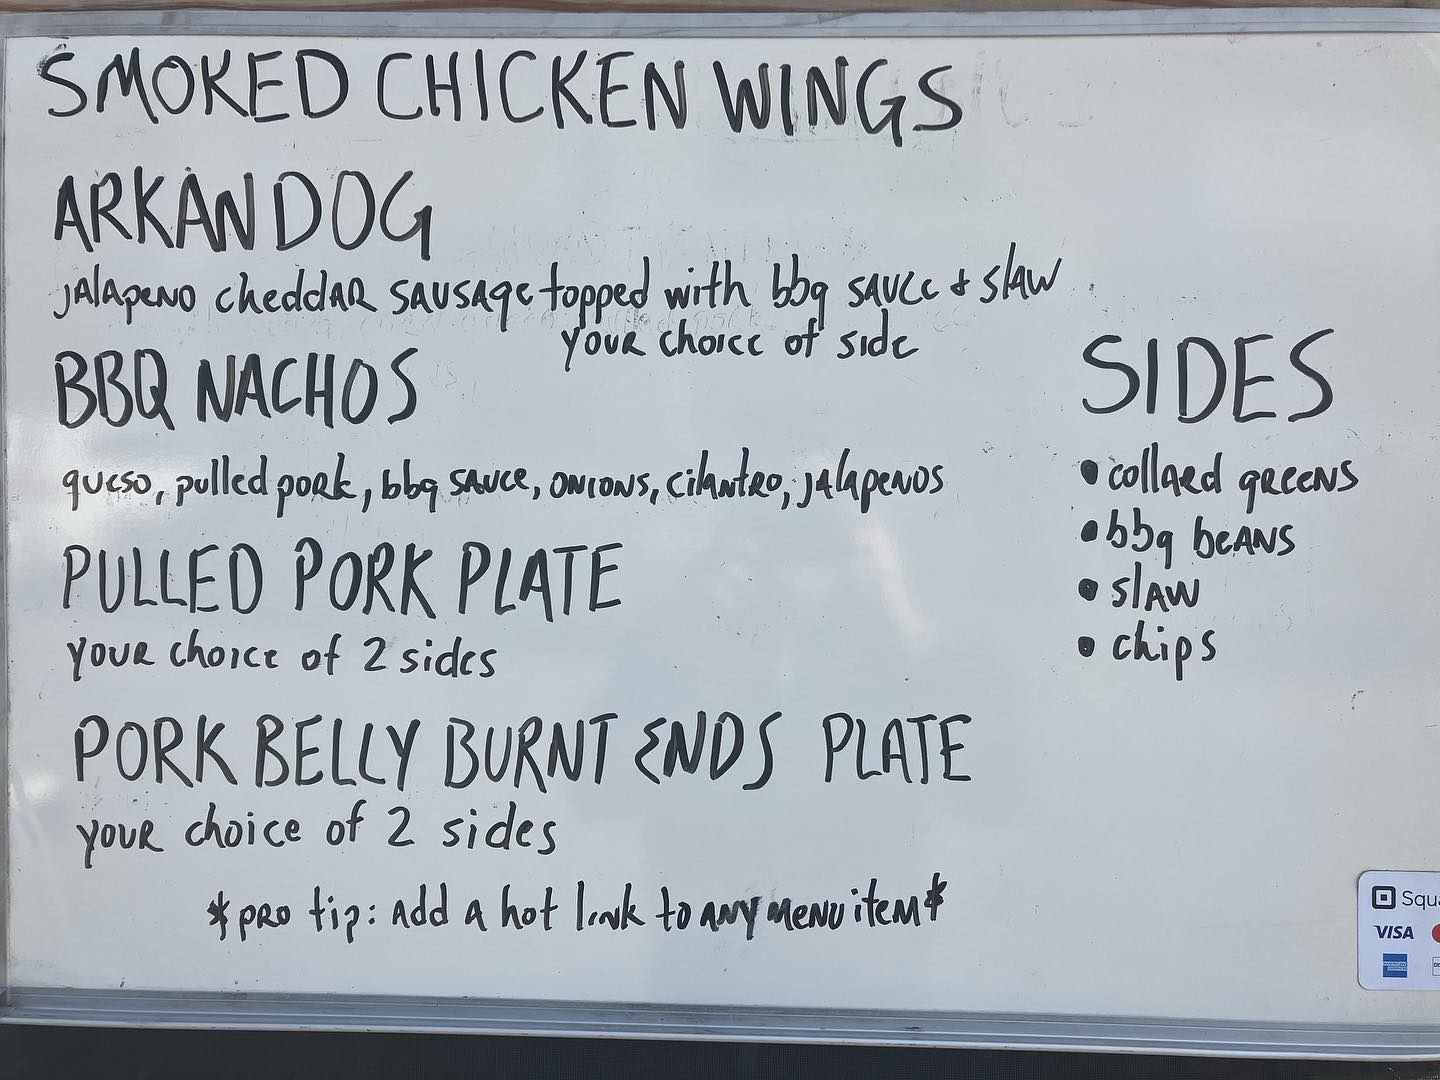 SMOKED CHICKEN WINGS
ARKANDOG
jalapeno cheddar sausage topped with bbq sauce & slaw
your choice of side
BBQ NACHOS
queso, pulled pork, bbq sauce, onions, cilantro, jalapenos
PULLED PORK PLATE
your choice of 2 sides
PORK BELLY BURNT ENDS PLATE
your choice of 2 sides
*pro tip: add a hot link to any menu item*
SIDES
• collard greens
• bbq beans
• slaw
• chips
Squa
VISA